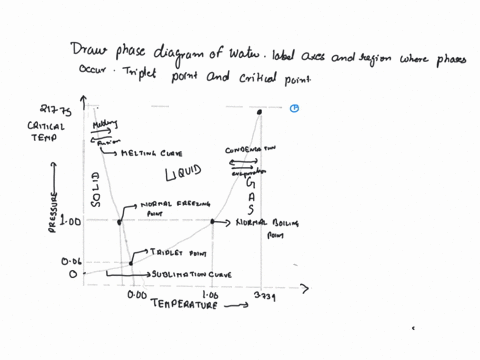 Draw phase diagram of water. label axes and region where phases
occur. Triplet point and critical point
217.75
CRITICAL
TEMP
Melting
Fusion
MELTING CURVE
LIQUID
CONDENSATION
evaporation
SOLID
GAS
PRESSURE
1.00
NORMAL FREEZING
POINT
NORMAL BOILING
POINT
TRIPLET POINT
0.06
0
SUBLIMATION CURVE
0.00
1.00
3.739
TEMPERATURE